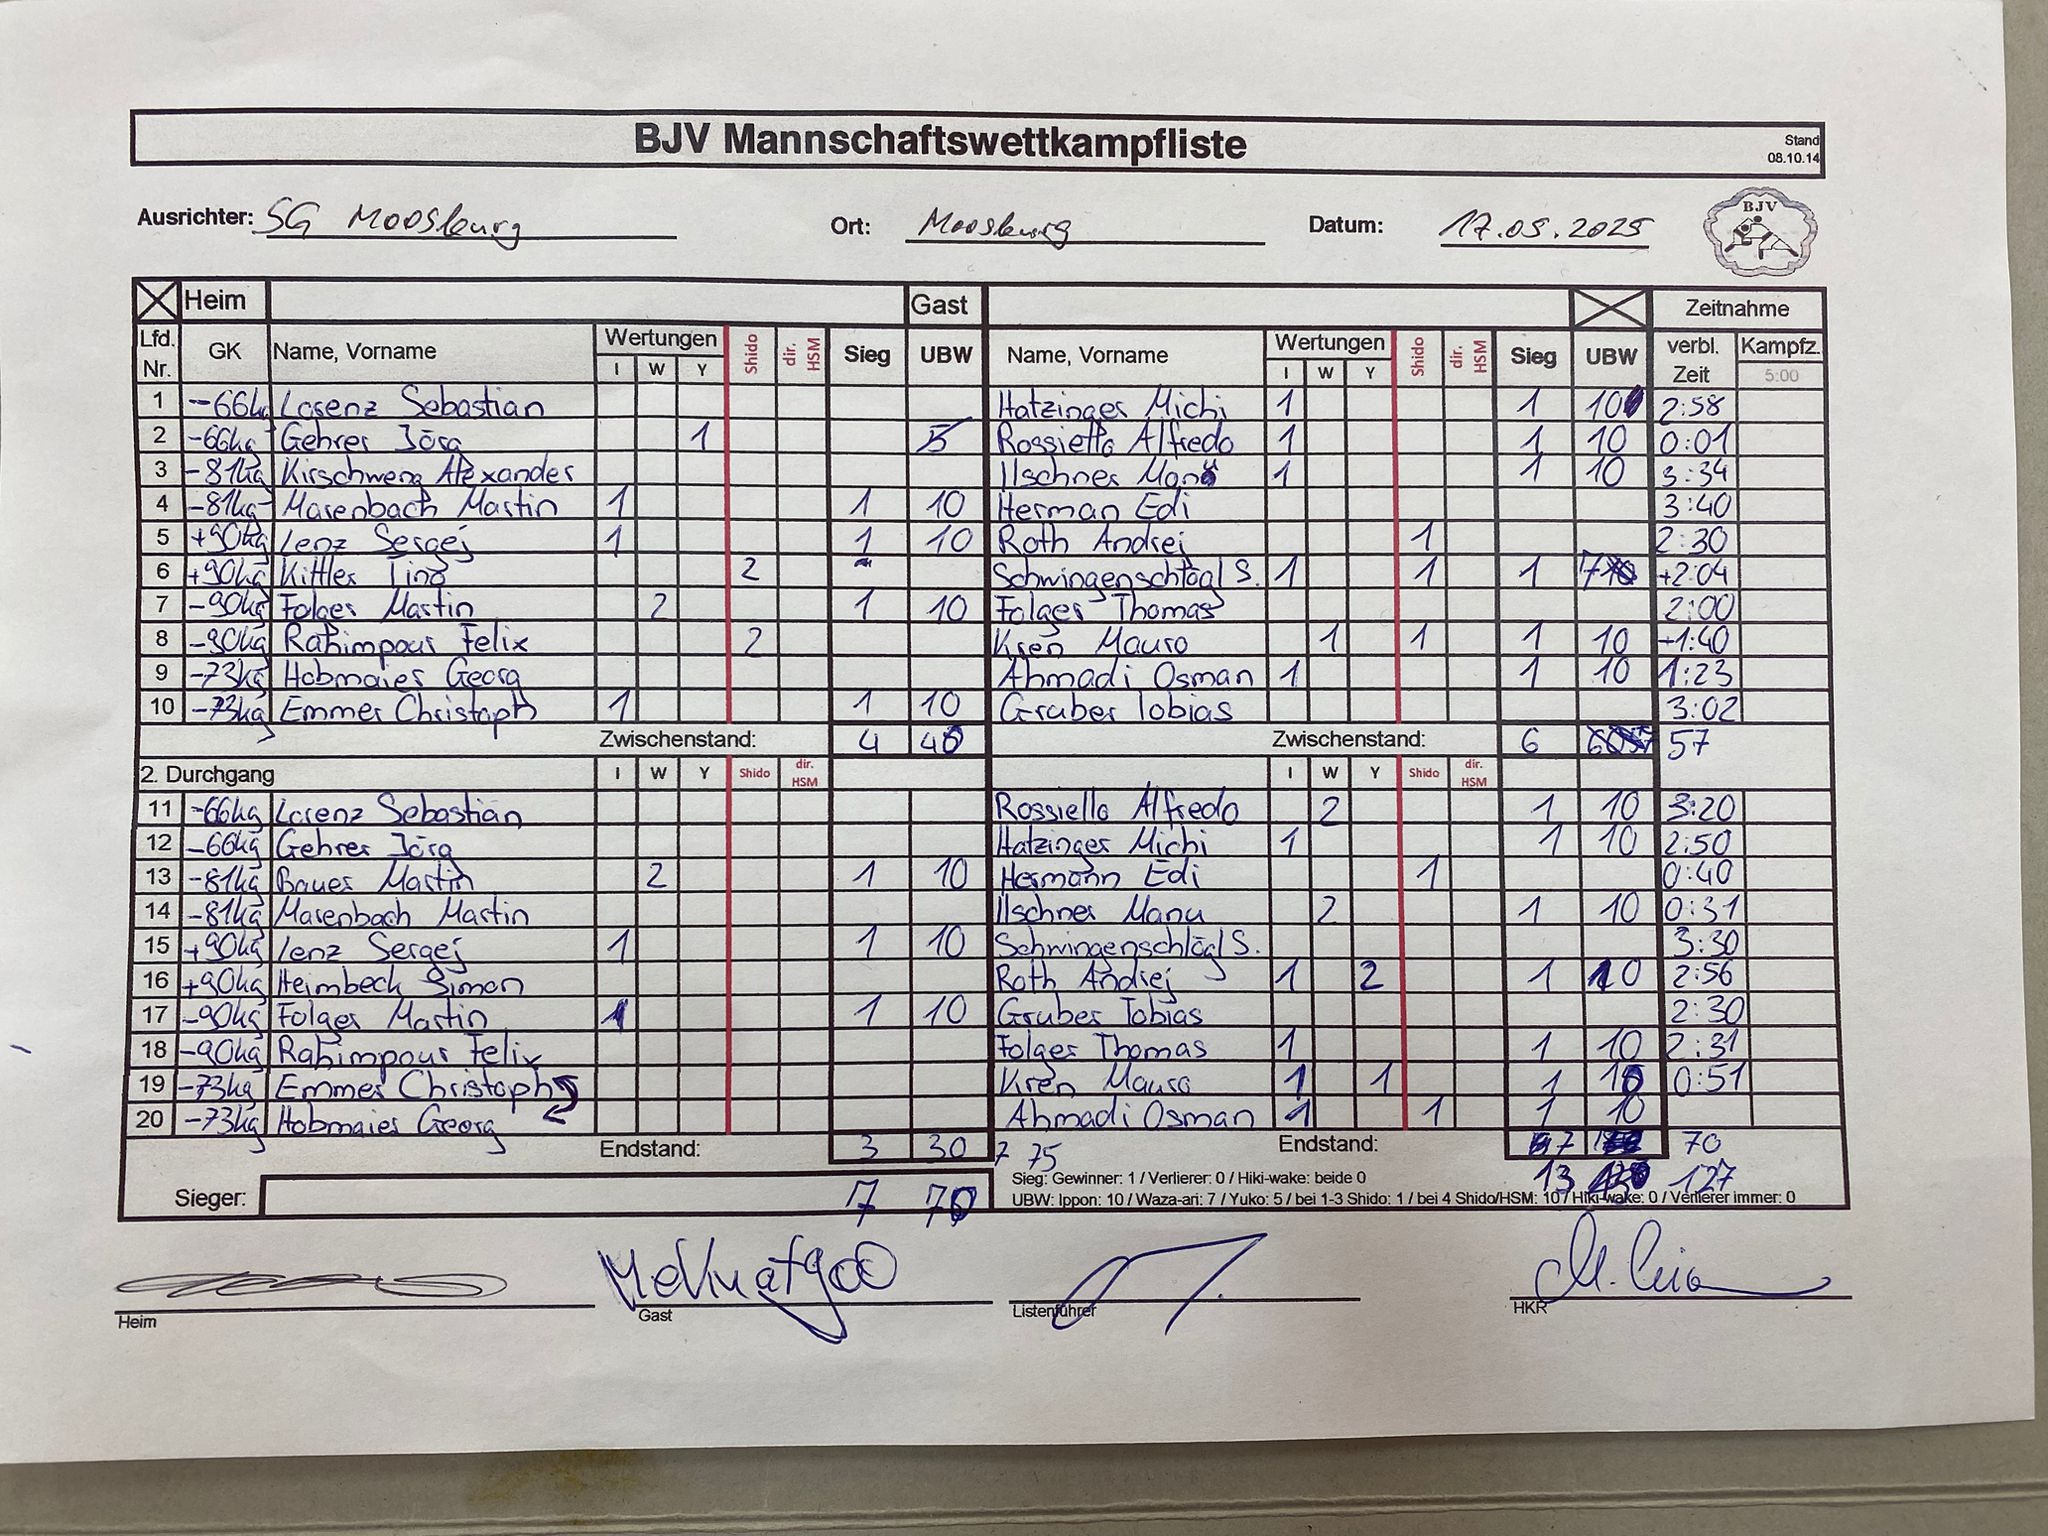 BJV Mannschaftswettkampfliste
Stand
08.10.14
Ausrichter: SG Moosburg Ort: Moosburg Datum: 17.05.2025
BJV
Heim Gast Zeitnahme
Lfd. Nr. GK Name, Vorname Wertungen I W Y Shido dir. HSM Sieg UBW Name, Vorname Wertungen I W Y Shido dir. HSM Sieg UBW verbl. Zeit Kampfz. 5:00
1 -66kg Lorenz Sebastian Hatzinger Michi 1 1 10 2:58
2 -66kg Gehrer Jörg 1 5 Rossiello Alfredo 1 1 10 0:01
3 -81kg Kirschweng Alexander Ilschner Manu 1 1 10 3:34
4 -81kg Marenbach Martin 1 1 10 Herman Edi 3:40
5 +90kg Lenz Sergej 1 1 10 Roth Andrej 1 2:30
6 +90kg Kittler Tino 2 Schwingenschlögl S. 1 1 1 7 +2:04
7 -90kg Folger Martin 2 1 10 Folger Thomas 2:00
8 -90kg Rahimpour Felix 2 Kren Mauro 1 1 1 10 +1:40
9 -73kg Hobmaier Georg Ahmadi Osman 1 1 10 1:23
10 -73kg Emmer Christoph 1 1 10 Gruber Tobias 3:02
Zwischenstand: 4 40 Zwischenstand: 6 57
2. Durchgang I W Y Shido dir. HSM I W Y Shido dir. HSM
11 -66kg Lorenz Sebastian Rossiello Alfredo 2 1 10 3:20
12 -66kg Gehrer Jörg Hatzinger Michi 1 1 10 2:50
13 -81kg Bauer Martin 2 1 10 Hermann Edi 1 0:40
14 -81kg Marenbach Martin Ilschner Manu 2 1 10 0:31
15 +90kg Lenz Sergej 1 1 10 Schwingenschlögl S. 3:30
16 +90kg Heimbeck Simon Roth Andrej 1 2 1 10 2:56
17 -90kg Folger Martin 1 1 10 Gruber Tobias 2:30
18 -90kg Rahimpour Felix Folger Thomas 1 1 10 2:31
19 -73kg Emmer Christoph Kren Mauro 1 1 1 10 0:51
20 -73kg Hobmaier Georg Ahmadi Osman 1 1 1 10
Endstand: 3 30 7 75 Endstand: 7 70
Sieg: Gewinner: 1 / Verlierer: 0 / Hiki-wake: beide 0 13 127
Sieger: 7 70 UBW: Ippon: 10 / Waza-ari: 7 / Yuko: 5 / bei 1-3 Shido: 1 / bei 4 Shido/HSM: 10 / Hiki-wake: 0 / Verlierer immer: 0
Heim Gast Listenführer HKR